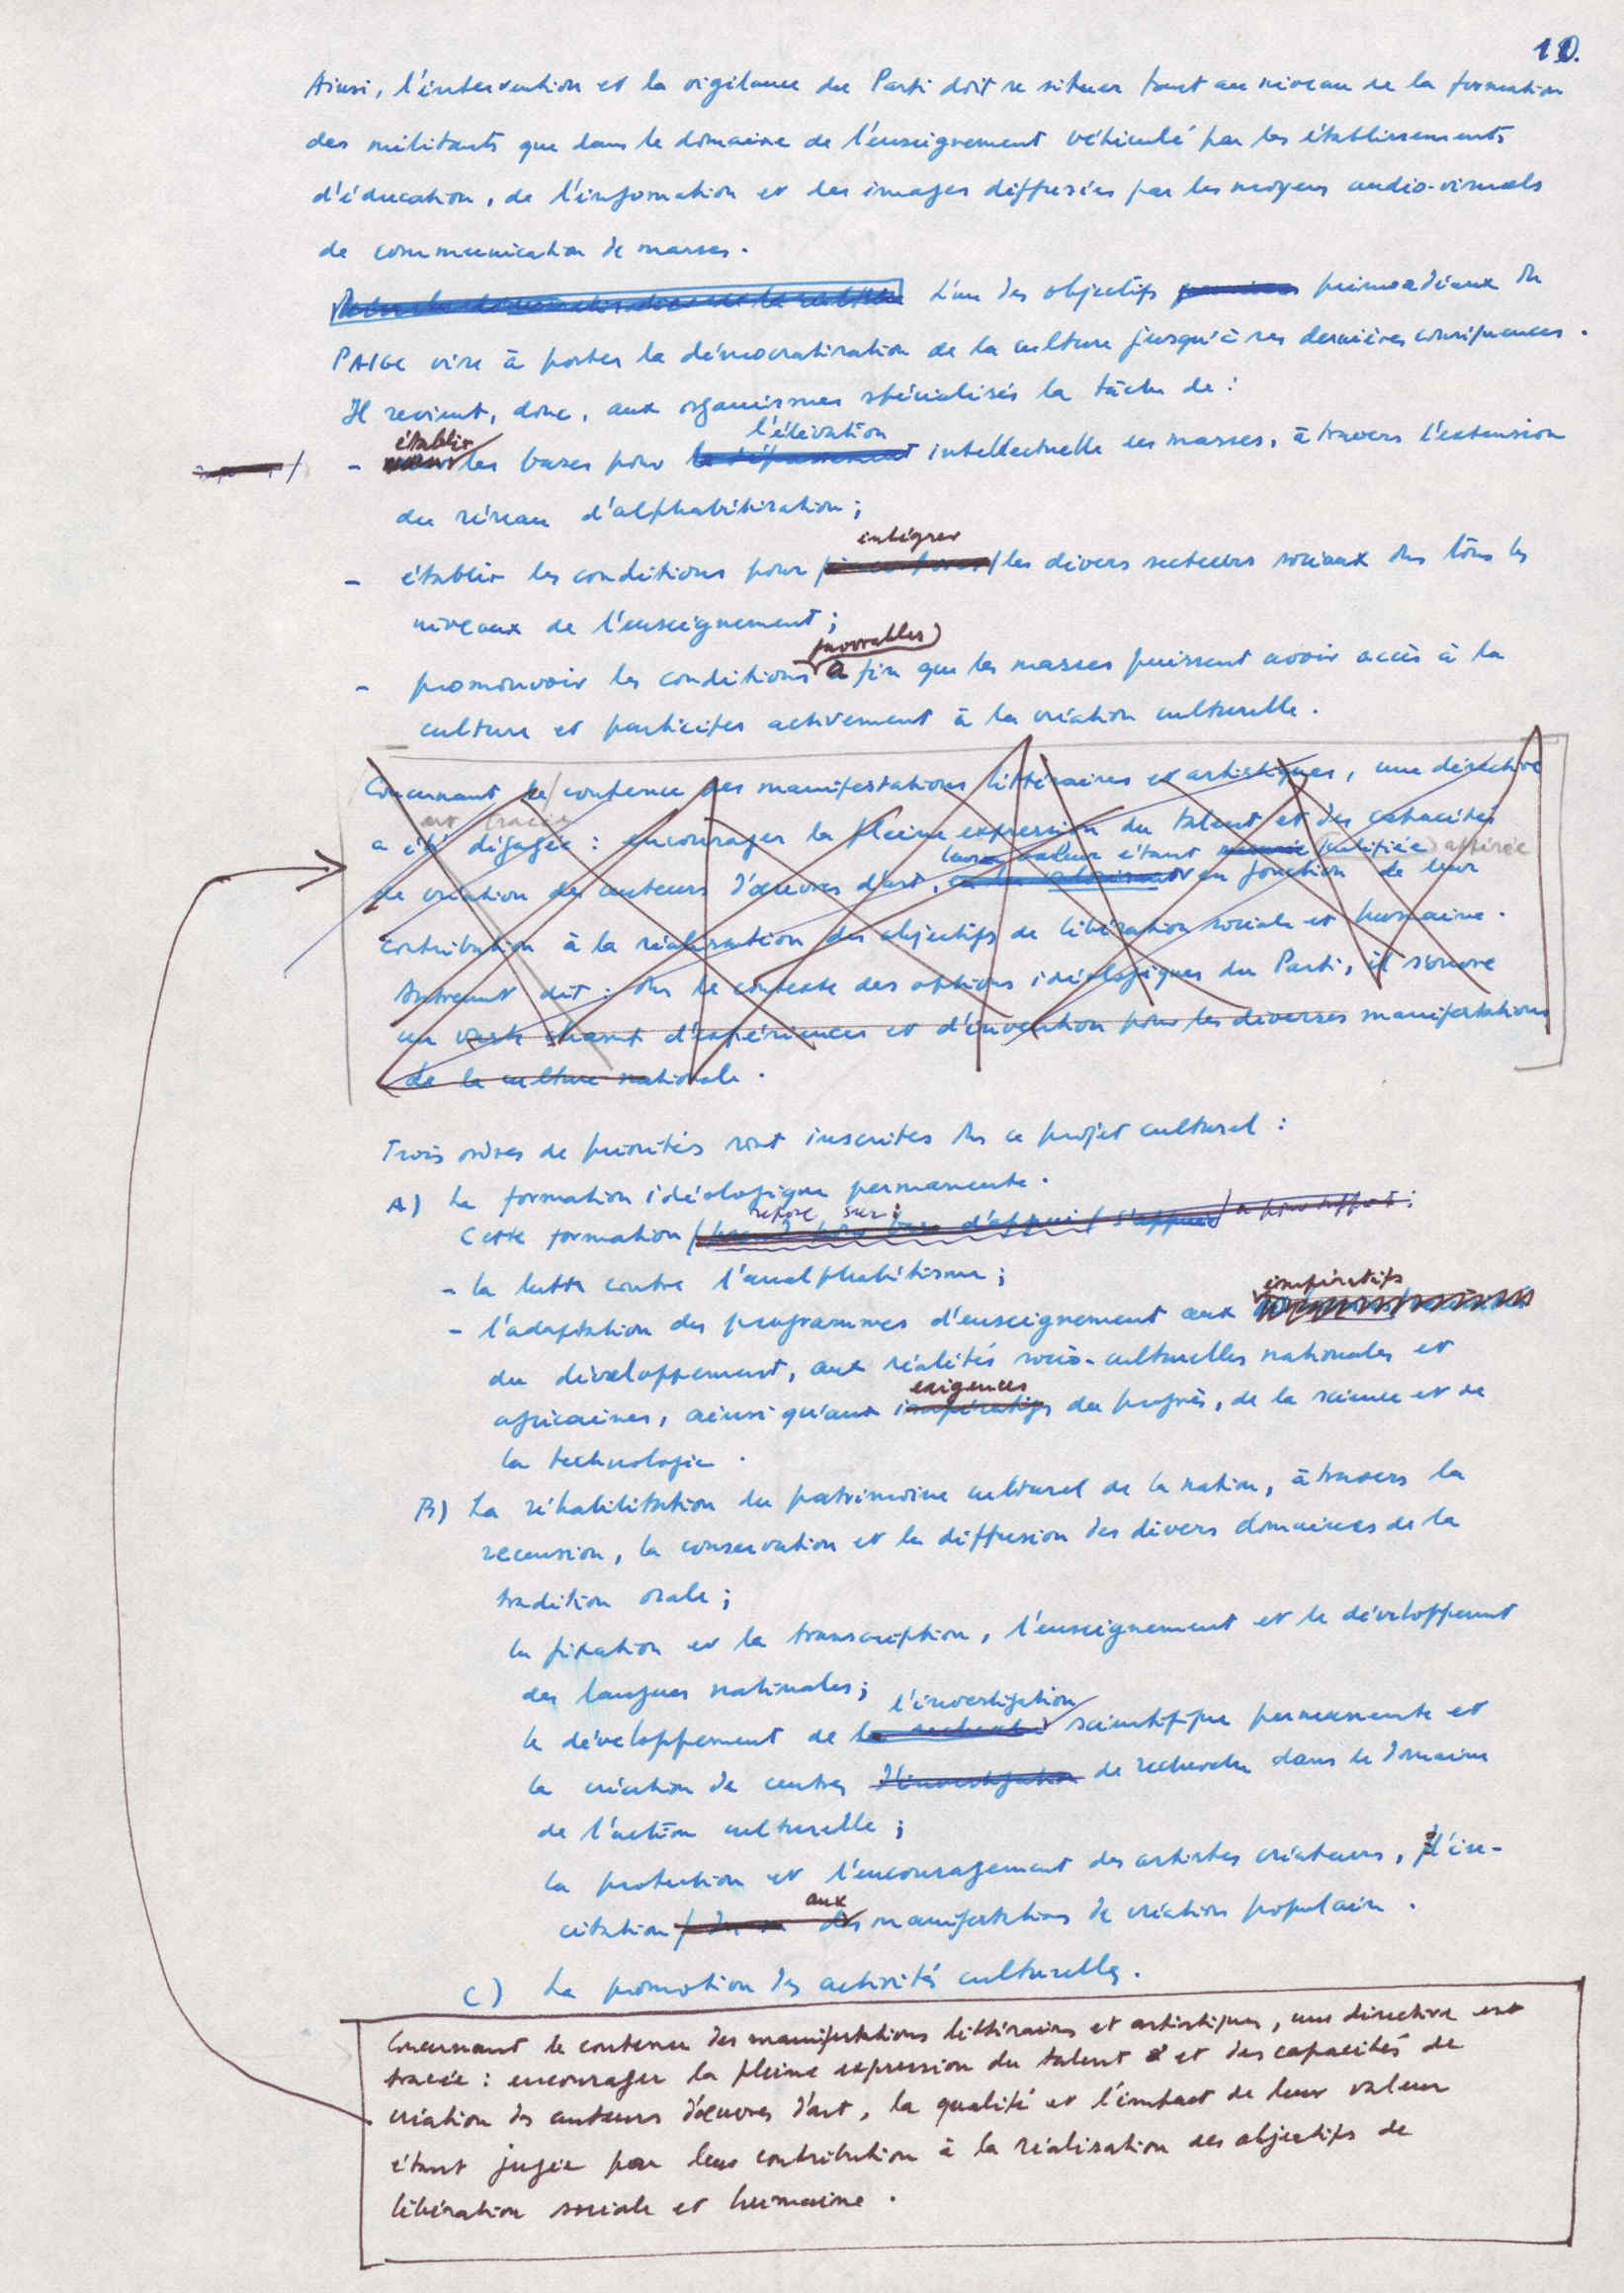 10.
Ainsi, l'intervention et la vigilance du Parti doit se situer tant au niveau de la formation
des militants que dans le domaine de l'enseignement véhiculé par les établissements
d'éducation, de l'information et des images diffusées par les moyens audio-visuels
de communication de masses.
L'un des objectifs primordiaux du
PAIGC vise à porter la démocratisation de la culture jusqu'à ses dernières conséquences.
Il revient, donc, aux organismes spécialisés la tâche de :
établir l'élévation
- les bases pour intellectuelle des masses, à travers l'extension
du réseau d'alphabétisation;
intégrer
- établir les conditions pour les divers secteurs sociaux ds tous les
niveaux de l'enseignement;
favorables
- promouvoir les conditions afin que les masses puissent avoir accès à la
culture et participer activement à la création culturelle.
Concernant le contenu des manifestations littéraires et artistiques, une directive
est tracée
a été dégagée : encourager la pleine expression du talent et des capacités
leur valeur étant
de création des auteurs d'œuvres d'art, en fonction de leur
contribution à la réalisation des objectifs de libération sociale et humaine.
Autrement dit : ds le contexte des options idéologiques du Parti, il s'ouvre
un vaste champ d'expériences et d'invention pour les diverses manifestations
de la culture nationale.
Trois ordres de priorités sont inscrites ds ce projet culturel :
A) La formation idéologique permanente.
repose sur :
Cette formation
- la lutte contre l'analphabétisme;
impératifs
- l'adaptation des programmes d'enseignement aux
du développement, aux réalités socio-culturelles nationales et
exigences
africaines, ainsi qu'aux impératifs du progrès, de la science et de
la technologie.
B) La réhabilitation du patrimoine culturel de la nation, à travers la
recension, la conservation et la diffusion des divers domaines de la
tradition orale;
la fixation et la transcription, l'enseignement et le développement
des langues nationales;
l'investigation
le développement de la recherche scientifique permanente et
la création de centres d'investigation de recherche dans le domaine
de l'action culturelle;
la protection et l'encouragement des artistes créateurs, l'in-
aux
citation manifestations de création populaire.
C) La promotion des activités culturelles.
Concernant le contenu des manifestations littéraires et artistiques, une directive est
tracée : encourager la pleine expression du talent et des capacités de
création des auteurs d'œuvres d'art, la qualité et l'impact de leur valeur
étant jugée par leur contribution à la réalisation des objectifs de
libération sociale et humaine.